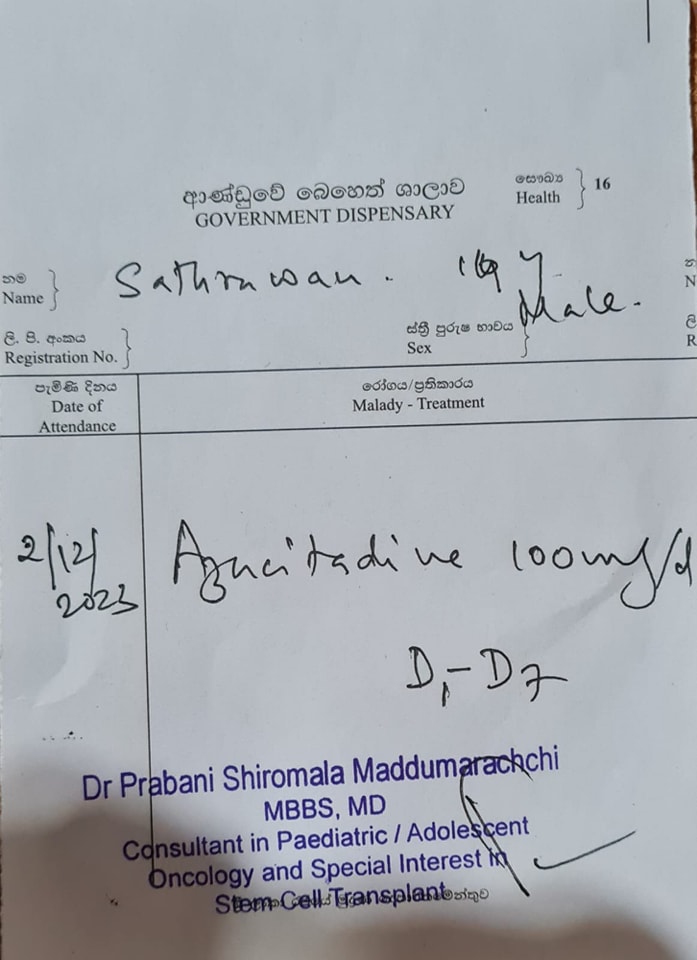 ආණ්ඩුවේ බෙහෙත් ශාලාව
GOVERNMENT DISPENSARY
සෞඛ්‍ය
Health } 16
නම
Name } Sathruwan.
Male.
ලි. පි. අංකය
Registration No. }
ස්ත්‍රී පුරුෂ භාවය
Sex }
න
N
ලි
R
පැමිණි දිනය
Date of
Attendance
රෝගය/ප්‍රතිකාරය
Malady - Treatment
2/12/
2023
Azacitadine 100mg/d
D1-D7
Dr Prabani Shiromala Maddumarachchi
MBBS, MD
Consultant in Paediatric / Adolescent
Oncology and Special Interest in
Stem Cell Transplant